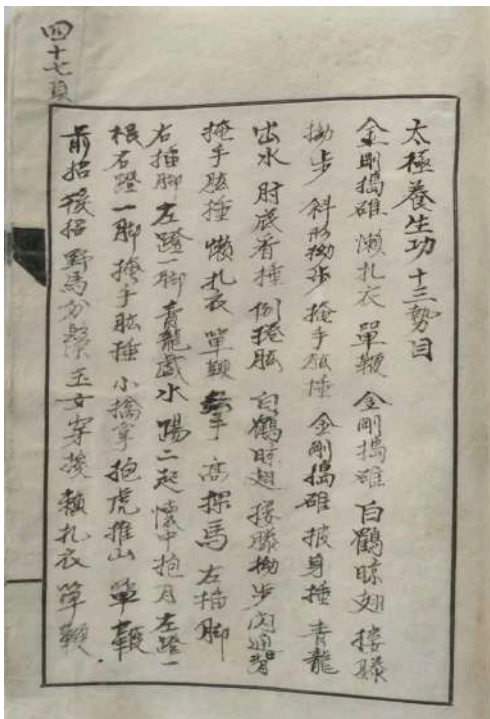 四十七頁
太極養生功十三勢目
金剛搗碓 懶扎衣 單鞭 金剛搗碓 白鶴晾翅 搂膝
拗步 斜形拗步 掩手肱捶 金剛搗碓 披身捶 青龍
出水 肘底看捶 倒捲肱 白鶴晾翅 搂膝拗步 閃通背
掩手肱捶 懶扎衣 單鞭 雲手 高探馬 左插脚
右插脚 左蹬一脚 青龍戲水 踢二起 懷中抱月 左蹬一
根右蹬一脚 掩手肱捶 小擒拿 抱虎推山 單鞭
前招 後招 野馬分鬃 玉女穿梭 懶扎衣 單鞭